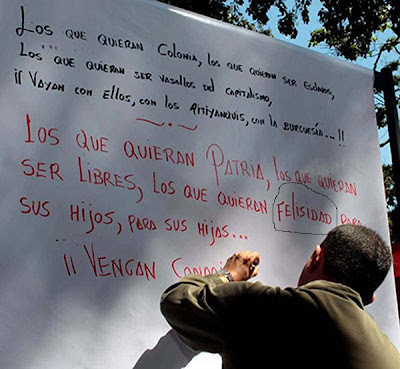 Los que quieran Colonia, los que quieran ser esclavos,
Los que quieran ser vasallos del capitalismo,
¡¡ Vayan con ellos, con los Pitiyanquis, con la burguesía...!!
Los que quieran Patria, los que quieran
ser libres, los que quieran Felisidad para
sus hijos, para sus hijas...
¡¡ Vengan